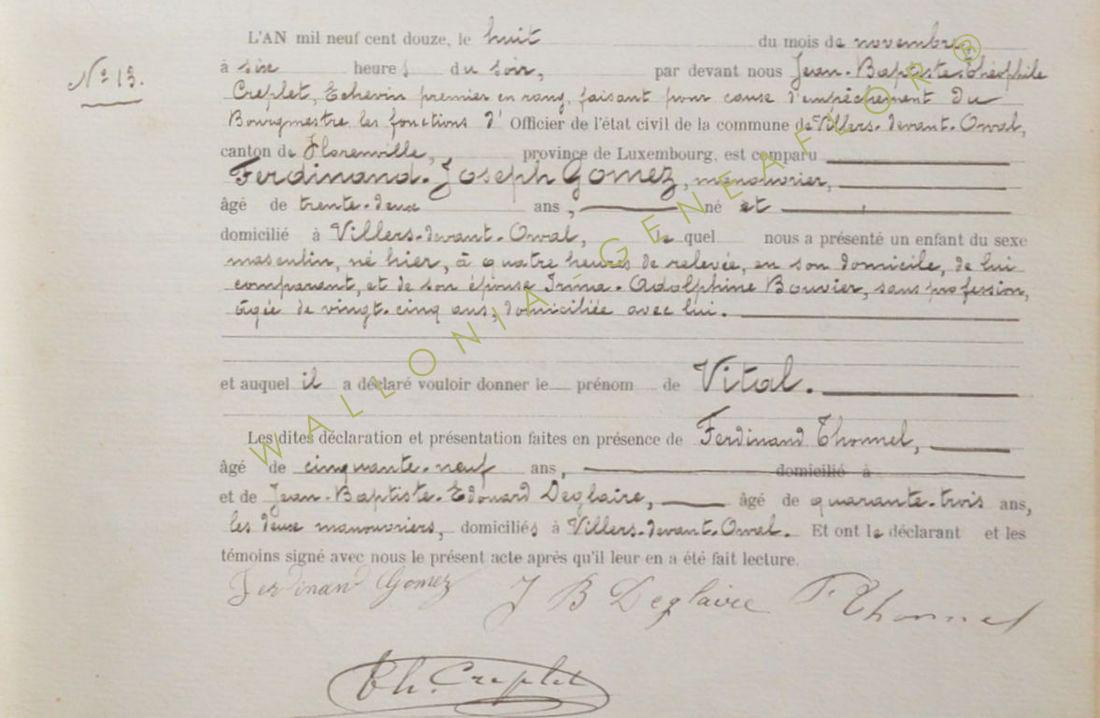 L'AN mil neuf cent douze, le huit du mois de novembre,
N° 13.
à six heures du soir, par devant nous Jean-Baptiste-Théophile
Creplet, Echevin premier en rang, faisant pour cause d'empêchement du
Bourgmestre les fonctions d'Officier de l'état civil de la commune de Villers-devant-Orval,
canton de Florenville, province de Luxembourg, est comparu
Ferdinand-Joseph Gomez, manouvrier,
âgé de trente-deux ans, né et
domicilié à Villers-devant-Orval, le quel nous a présenté un enfant du sexe
masculin, né hier, à quatre heures de relevée, en son domicile, de lui
comparant, et de son épouse Irma-Adolphine Bouvier, sans profession,
âgée de vingt-cinq ans, domiciliée avec lui.
et auquel il a déclaré vouloir donner le prénom de Vital.
Les dites déclaration et présentation faites en présence de Ferdinand Thonnel,
âgé de cinquante-neuf ans, domicilié à
et de Jean-Baptiste-Edouard Déglaire, âgé de quarante-trois ans,
les deux manouvriers, domiciliés à Villers-devant-Orval. Et ont le déclarant et les
témoins signé avec nous le présent acte après qu'il leur en a été fait lecture.
Ferdinand Gomez J B Deglaire F. Thonnel
Th. Creplet
WALLONIA-GENEAFLOR ®